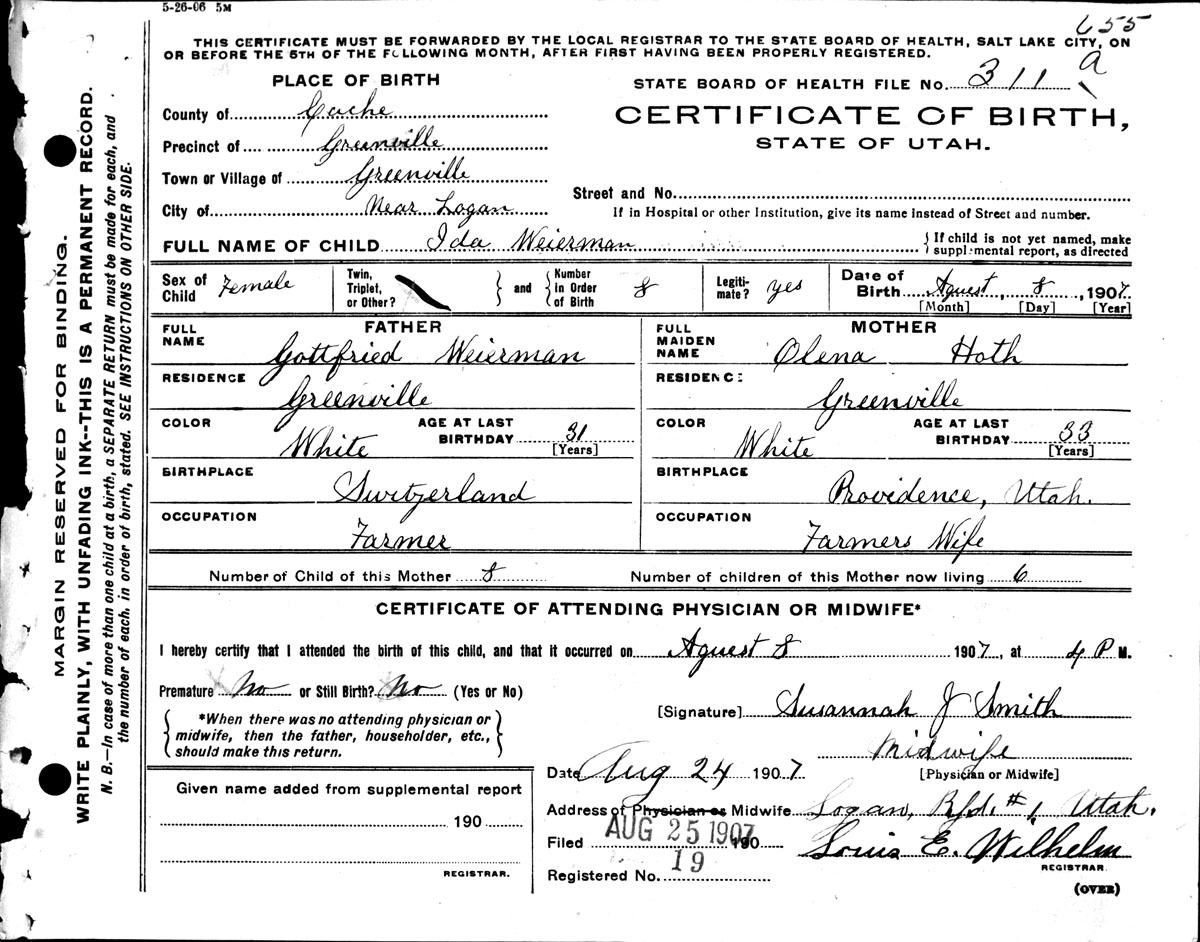 5-26-06 5M
655
a
THIS CERTIFICATE MUST BE FORWARDED BY THE LOCAL REGISTRAR TO THE STATE BOARD OF HEALTH, SALT LAKE CITY, ON
OR BEFORE THE 5TH OF THE FOLLOWING MONTH, AFTER FIRST HAVING BEEN PROPERLY REGISTERED.
PLACE OF BIRTH
STATE BOARD OF HEALTH FILE No. 311
County of Cache
CERTIFICATE OF BIRTH,
STATE OF UTAH.
Precinct of Greenville
Town or Village of Greenville
Street and No.
City of Near Logan
If in Hospital or other Institution, give its name instead of Street and number.
FULL NAME OF CHILD Ida Weierman
If child is not yet named, make
supplemental report, as directed
Sex of Child Female
Twin, Triplet, or Other?
and
Number in Order of Birth 8
Legiti-mate? yes
Date of Birth Aguest, 8, 1907
[Month] [Day] [Year]
FATHER
MOTHER
FULL NAME Gottfried Weierman
FULL MAIDEN NAME Olena Hoth
RESIDENCE Greenville
RESIDENCE Greenville
COLOR White AGE AT LAST BIRTHDAY 31 [Years]
COLOR White AGE AT LAST BIRTHDAY 33 [Years]
BIRTHPLACE Switzerland
BIRTHPLACE Providence, Utah.
OCCUPATION Farmer
OCCUPATION Farmers Wife
Number of Child of this Mother 8 Number of children of this Mother now living 6
CERTIFICATE OF ATTENDING PHYSICIAN OR MIDWIFE*
I hereby certify that I attended the birth of this child, and that it occurred on Aguest 8 1907, at 4 P M.
Premature No or Still Birth? No (Yes or No)
*When there was no attending physician or
midwife, then the father, householder, etc.,
should make this return.
[Signature] Susannah J Smith
Midwife
[Physician or Midwife]
Date Aug 24 1907
Given name added from supplemental report
190
REGISTRAR.
Address of Physician or Midwife Logan, Rfd. #1, Utah.
Filed AUG 25 1907 190
Louis E. Wilhelm
REGISTRAR
Registered No. 19
(OVER)
MARGIN RESERVED FOR BINDING.
WRITE PLAINLY, WITH UNFADING INK--THIS IS A PERMANENT RECORD.
N. B.—In case of more than one child at a birth, a SEPARATE RETURN must be made for each, and
the number of each, in order of birth, stated. SEE INSTRUCTIONS ON OTHER SIDE.